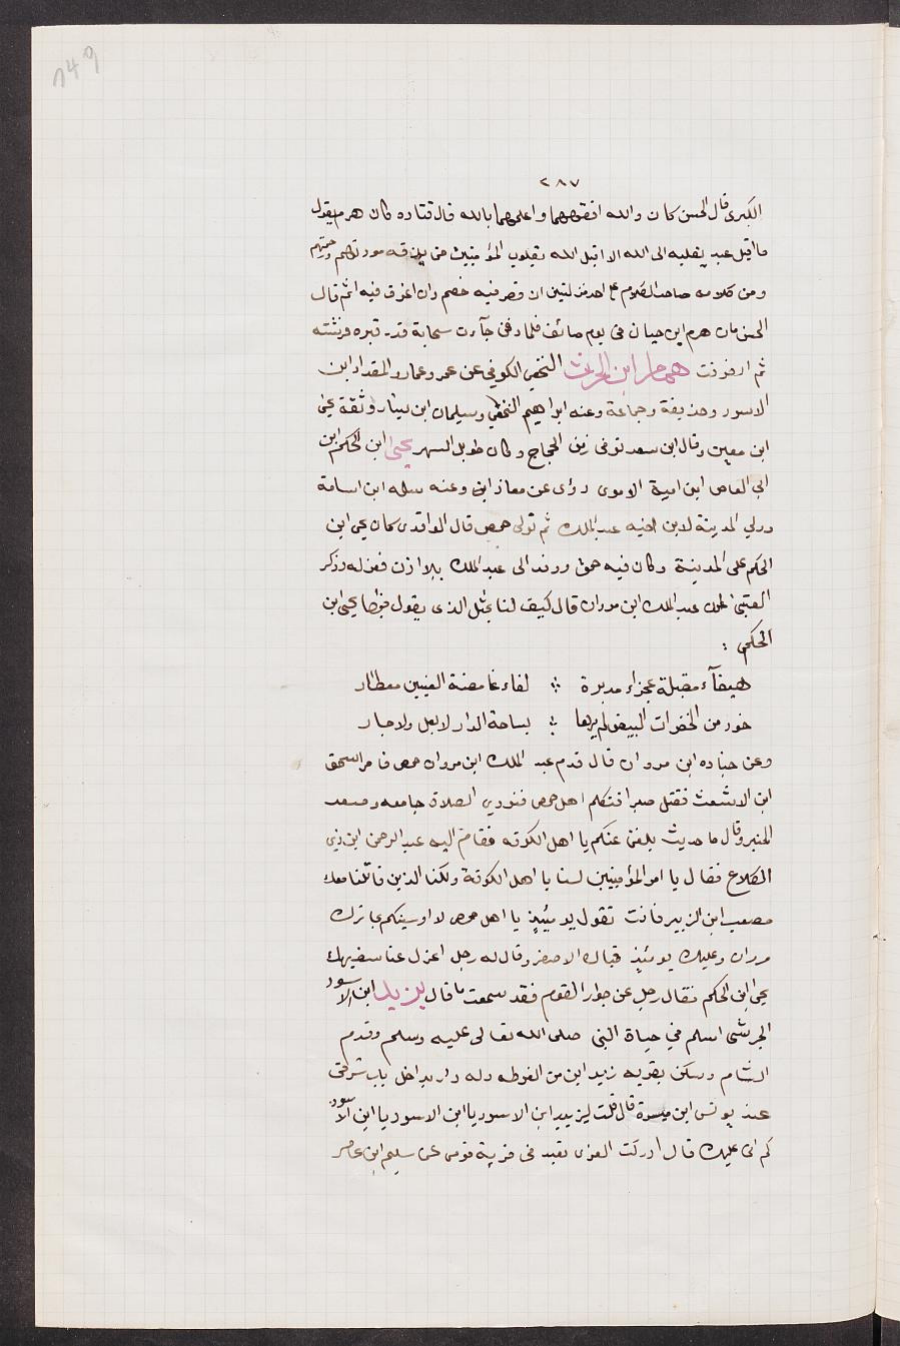 ١٤٩
٢٨٧
الكبرى قال الحسن كان والله افقههما واعلمهما بالله قال قتاده كان هرم يقول
ما اقبل عبد بقلبه الى الله الا اقبل الله بقلوب المؤمنين حتى يرزقه مودتهم ورحمتهم
ومن كلامه صاحب الكلام على احد منزلتين ان قصر فيه خصم وان اغرق فيه اثم قال
الحسن مات هرم ابن حيان فى يوم صائف فلما دفن جآءت سحابة قدر قبره فرشته
ثم انصرفت همام ابن الحريث النخعى الكوفي عن عمر وعمار والمقداد ابن
الاسود وحذيفة وجماعة وعنه ابراهيم النخعي وسليمان ابن يسار وثقة يحيى
ابن معين وقال ابن سعد توفى زمن الحجاج وكان طويل السهر يحيى ابن الحكم ابن
ابي العاص ابن امية الاموى روى عن معاذ وعنه سلمه ابن اسامة
وولي المدينة لابن اخيه عبد الملك ثم تولى حمص قال الواقدى كان يحيى ابن
الحكم على المدينة وكان فيه حمق ووفد الى عبد الملك بلا اذن فعزله وذكر
العتبي عبد الملك ابن مروان قال كيف لنا بمثل الذى يقول يحيى ابن
الحكم :
هيفآء مقبلة عجزاء مدبرة ؞ لفاء غامضة العينين معطار
خود من الخفرات البيض لم يرها ؞ بساحة الدار لا بعل ولا جار
وعن جناده ابن مروان قال قدم عبد الملك ابن مروان حمص فامر اسحق
ابن الاشعث فقتل صبرا فتكلم اهل حمص فنودي الصلاة جامعه وصعد
المنبر وقال ما حديث بلغنى عنكم يا اهل الكوفه فقام اليه عبد الرحمن ابن ذي
الكلاع فقال يا امير المؤمنين لسنا يا اهل الكوفة ولكنا الذين قاتلنا معك
مصعب ابن الزبير فانت تقول يومئيذ يا اهل حمص لاواسينكم بما ترك
مروان وعليك يومئيذ قباك الاصفر وقال له رجل اعزل عنا سفيهك
يحيى ابن الحكم فقال رحل عن جوار القوم فقد سمعت ما قال يزيد ابن الاسود
الجرشي اسلم في حياة النبى صلى الله تعالى عليه وسلم وقدم
الشام وسكن بقريه زبدين من الغوطه وله دار بداخل باب شرقى
عند يونس ابن ميسرة قال قلت ليزيد ابن الاسود يا ابن الاسود يا ابن الاسود
كم اتى عليك قال ادركت العزى تعبد فى قرية قومى عن سليم ابن عامر